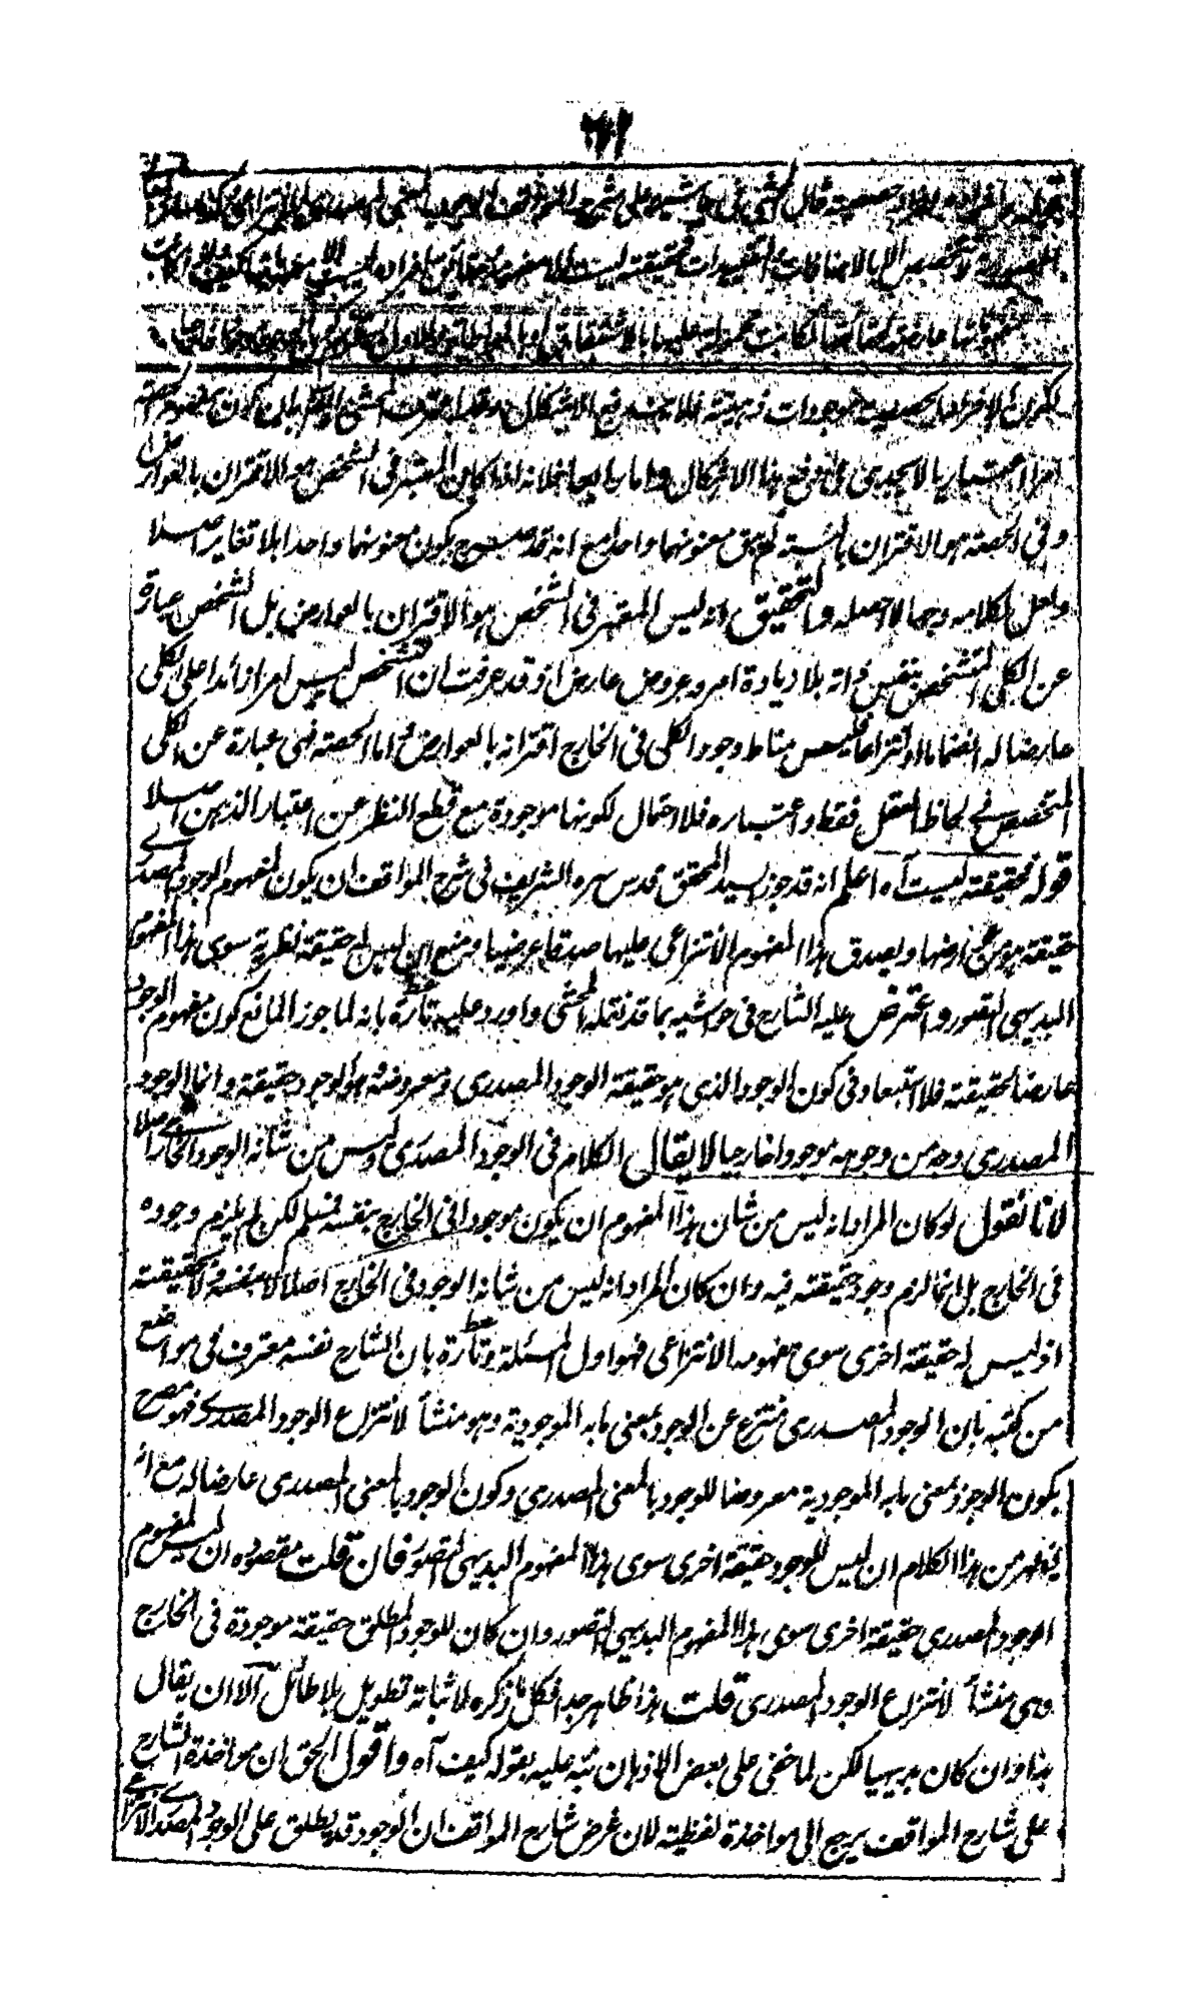 قال المحشي في حاشيته على شرح المواقف الوجود
لا تخصص الا بالاضافات والتقييدات فحقيقته ليست الا
بالاشتقاق
موجودات ذهنية الاشكال
امرا اعتباريا لا يجدي في دفع هذا الاشكال واما رابعا فلانه اذا كان المعتبر في الشخص هو الاقتران بالعوارض
وفي الحصة هو الاقتران بالنسبة لم يبق معنونهما واحد مع انه قد صرح بكون معنونهما واحدا بلا تغاير اصلا
ولعل لكلامه وجها لا احصله والتحقيق انه ليس المعتبر في الشخص هو الاقتران بالعوارض بل الشخص عبارة
عن الكلي المتشخص بنفس ذاته بلا زيادة امر وعروض عارض اذ قد عرفت ان التشخص ليس امرا زائدا على الكلي
عارضا له انضماما او انتزاعا فليس مناط وجود الكلي في الخارج اقترانه بالعوارض واما الحصة فهي عبارة عن الكلي
المتخصص في لحاظ العقل فقط واعتباره فلا احتمال لكونها موجودة مع قطع النظر عن اعتبار الذهن اصلا
قوله فحقيقته ليست آه اعلم انه قد جوز السيد المحقق قدس سره الشريف في شرح المواقف ان يكون لمفهوم الوجود المصدري
حقيقة هو من عوارضها ويصدق هذا المفهوم الانتزاعي عليها صدقا عرضيا ومنع ان ليس له حقيقة نظرية سوى هذا المفهوم
البديهي التصور واعترض عليه الشارح في حواشيه بما قد نقله المحشي واورد عليه تارة بانه لما جوز المانع كون مفهوم الوجود
عارضا لحقيقته فلا استبعاد في كون الوجود الذي هو حقيقة الوجود المصدري ومعروضه هو الوجود حقيقة وانما الوجود
المصدري وجه من وجوهه موجودا خارجيا لا يقال الكلام في الوجود المصدري وليس من شانه الوجود الخارجي اصلا
لانا نقول لو كان المراد انه ليس من شان هذا المفهوم ان يكون موجودا في الخارج بنفسه فمسلم لكن لم يلزم وجوده
في الخارج بل انما لزم وجود حقيقته فيه وان كان المراد انه ليس من شانه الوجود في الخارج اصلا لا بنفسه ولا بحقيقته
اذ ليس له حقيقة اخرى سوى مفهومه الانتزاعي فهو اول المسئلة وتارة بان الشارح نفسه معترف في مواضع
من كتبه بان الوجود المصدري منتزع عن الوجود بمعنى ما به الموجودية وهو منشأ لانتزاع الوجود المصدري فهو مصرح
بكون الوجود بمعنى ما به الموجودية معروضا للوجود بالمعنى المصدري وكون الوجود بالمعنى المصدري عارضا له مع انه
يظهر من هذا الكلام ان ليس للوجود حقيقة اخرى سوى هذا المفهوم البديهي التصور فان قلت مقصوده ان ليس لمفهوم
الوجود المصدري حقيقة اخرى سوى هذا المفهوم البديهي التصور وان كان للوجود المطلق حقيقة موجودة في الخارج
وهي منشأ لانتزاع الوجود المصدري قلت هذا ظاهر جدا فكل ما ذكره لاثباته تطويل بلا طائل الا ان يقال
هذا وان كان بديهيا لكن لما خفي على بعض الاذهان نبه عليه بقوله كيف آه واقول الحق ان مواخذة الشارح
على شارح المواقف يرجع الى مواخذة لفظية لان غرض شارح المواقف ان الوجود قد يطلق على الوجود المصدري الانتزاعي